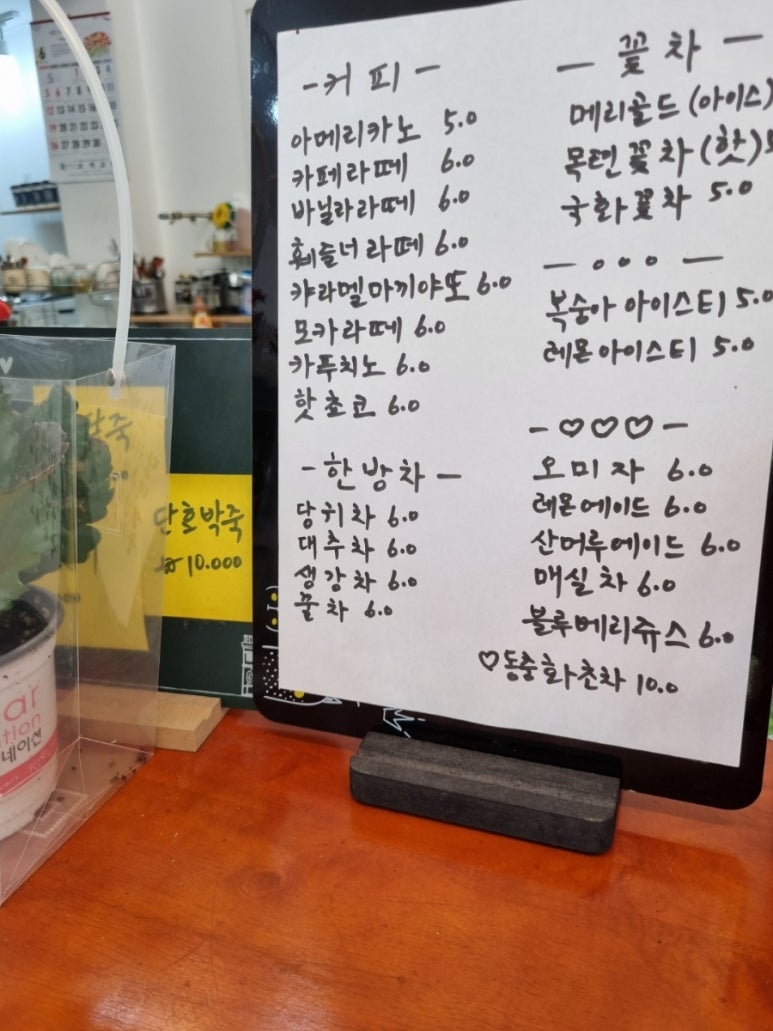 - 커 피 -
아메리카노 5.0
카페라떼 6.0
바닐라라떼 6.0
헤즐너라떼 6.0
캬라멜마끼야또 6.0
모카라떼 6.0
카푸치노 6.0
핫쵸코 6.0
- 한방차 -
당귀차 6.0
대추차 6.0
생강차 6.0
꿀차 6.0
- 꽃차 -
메리골드 (아이스)
목련꽃차 (핫)
국화꽃차 5.0
- ㅇㅇㅇ -
복숭아 아이스티 5.0
레몬아이스티 5.0
- ♡♡♡ -
오미자 6.0
레몬에이드 6.0
산머루에이드 6.0
매실차 6.0
블루베리쥬스 6.0
♡동충화초차 10.0
단호박죽
₩10.000
팥죽
ar
tion
네이션
6